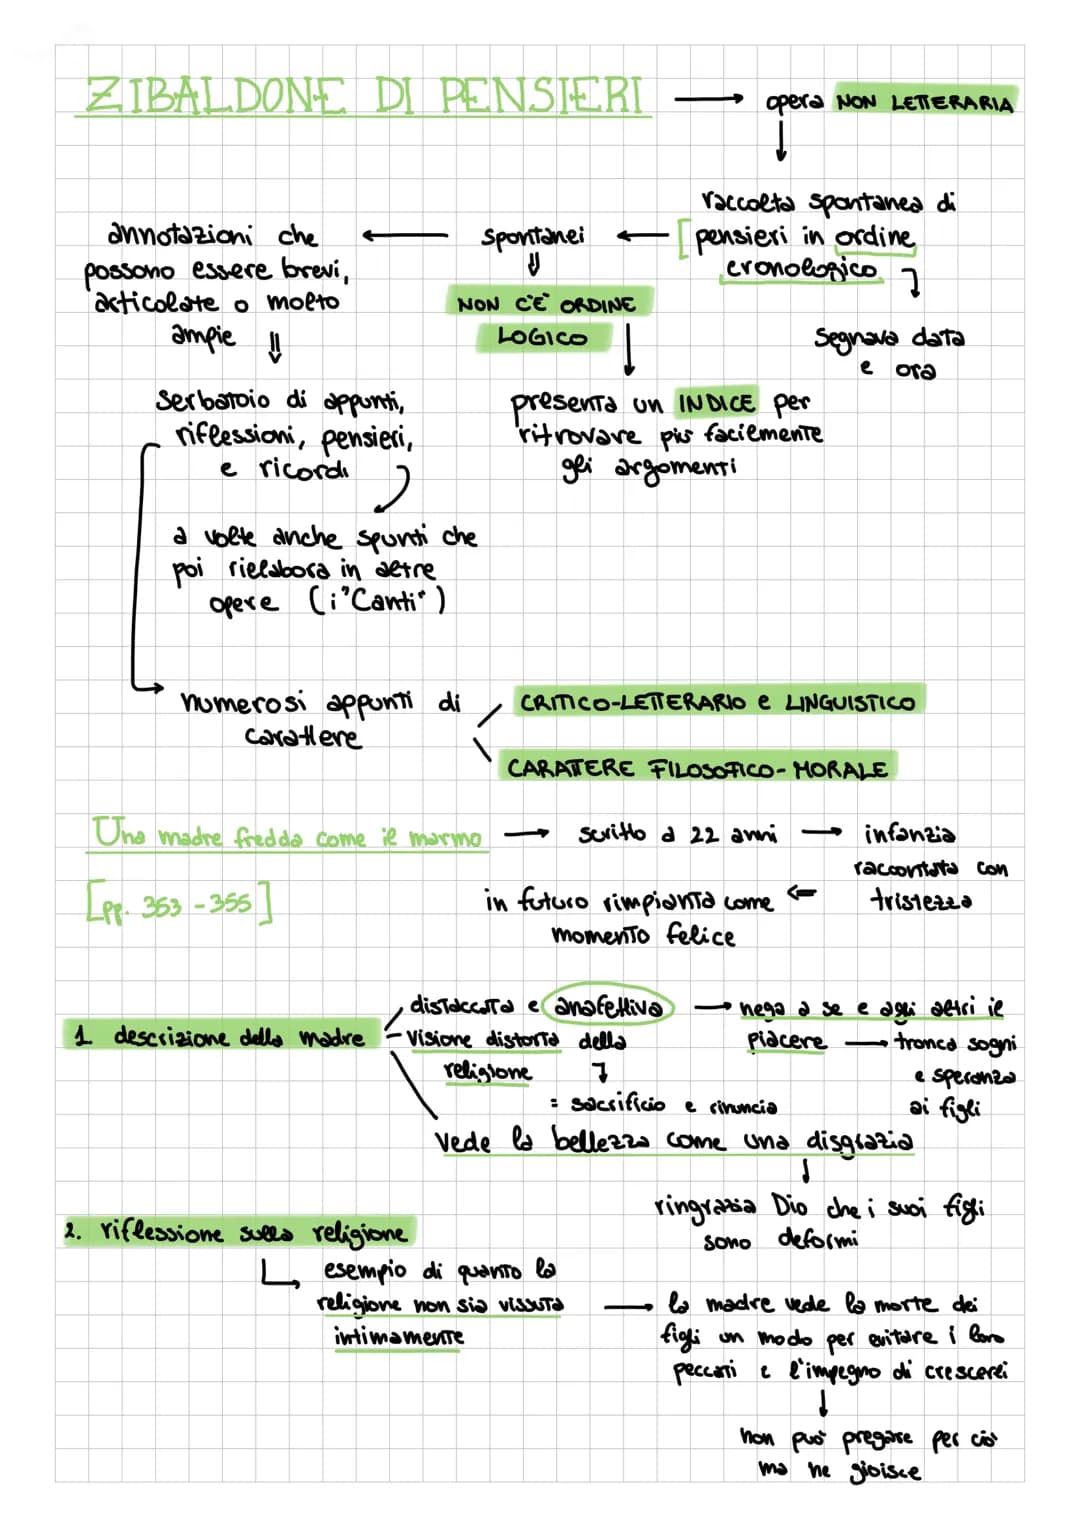 ZIBALDONE DI PENSIERI → opera NON LETTERARIA
raccolta spontanea di
[pensieri in ordine
cronologico
segnava data
e ora
spontanei
NON C'È ORDINE
LOGICO
presenta un INDICE per
ritrovare più facilmente
gli argomenti
annotazioni che
possono essere brevi,
articolate o molto
ampie
serbatoio di appunti,
riflessioni, pensieri,
e ricordi
a volte anche spunti che
poi rielabora in altre
opere (i "Canti")
numerosi appunti di
carattere
CRITICO-LETTERARIO e LINGUISTICO
CARATTERE FILOSOFICO-MORALE
Una madre fredda come il marmo → scritto a 22 anni → infanzia
raccontata con
tristezza
in futuro rimpianta come
momento felice
[pp. 353-355]
1 descrizione della madre
distaccata e anafettiva → nega a se e agli altri il
piacere → tronca sogni
e speranza
ai figli
- visione distorta della
religione
= sacrificio e rinuncia
vede la bellezza come una disgrazia
ringrazia Dio che i suoi figli
sono deformi
2. riflessione sulla religione
esempio di quanto la
religione non sia vissuta
intimamente
→ la madre vede la morte dei
figli un modo per evitare i loro
peccati e l'impegno di crescerli
non può pregare per ciò
ma ne gioisce